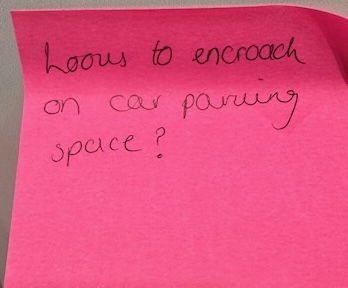 Looks to encroach
on car parking
space?